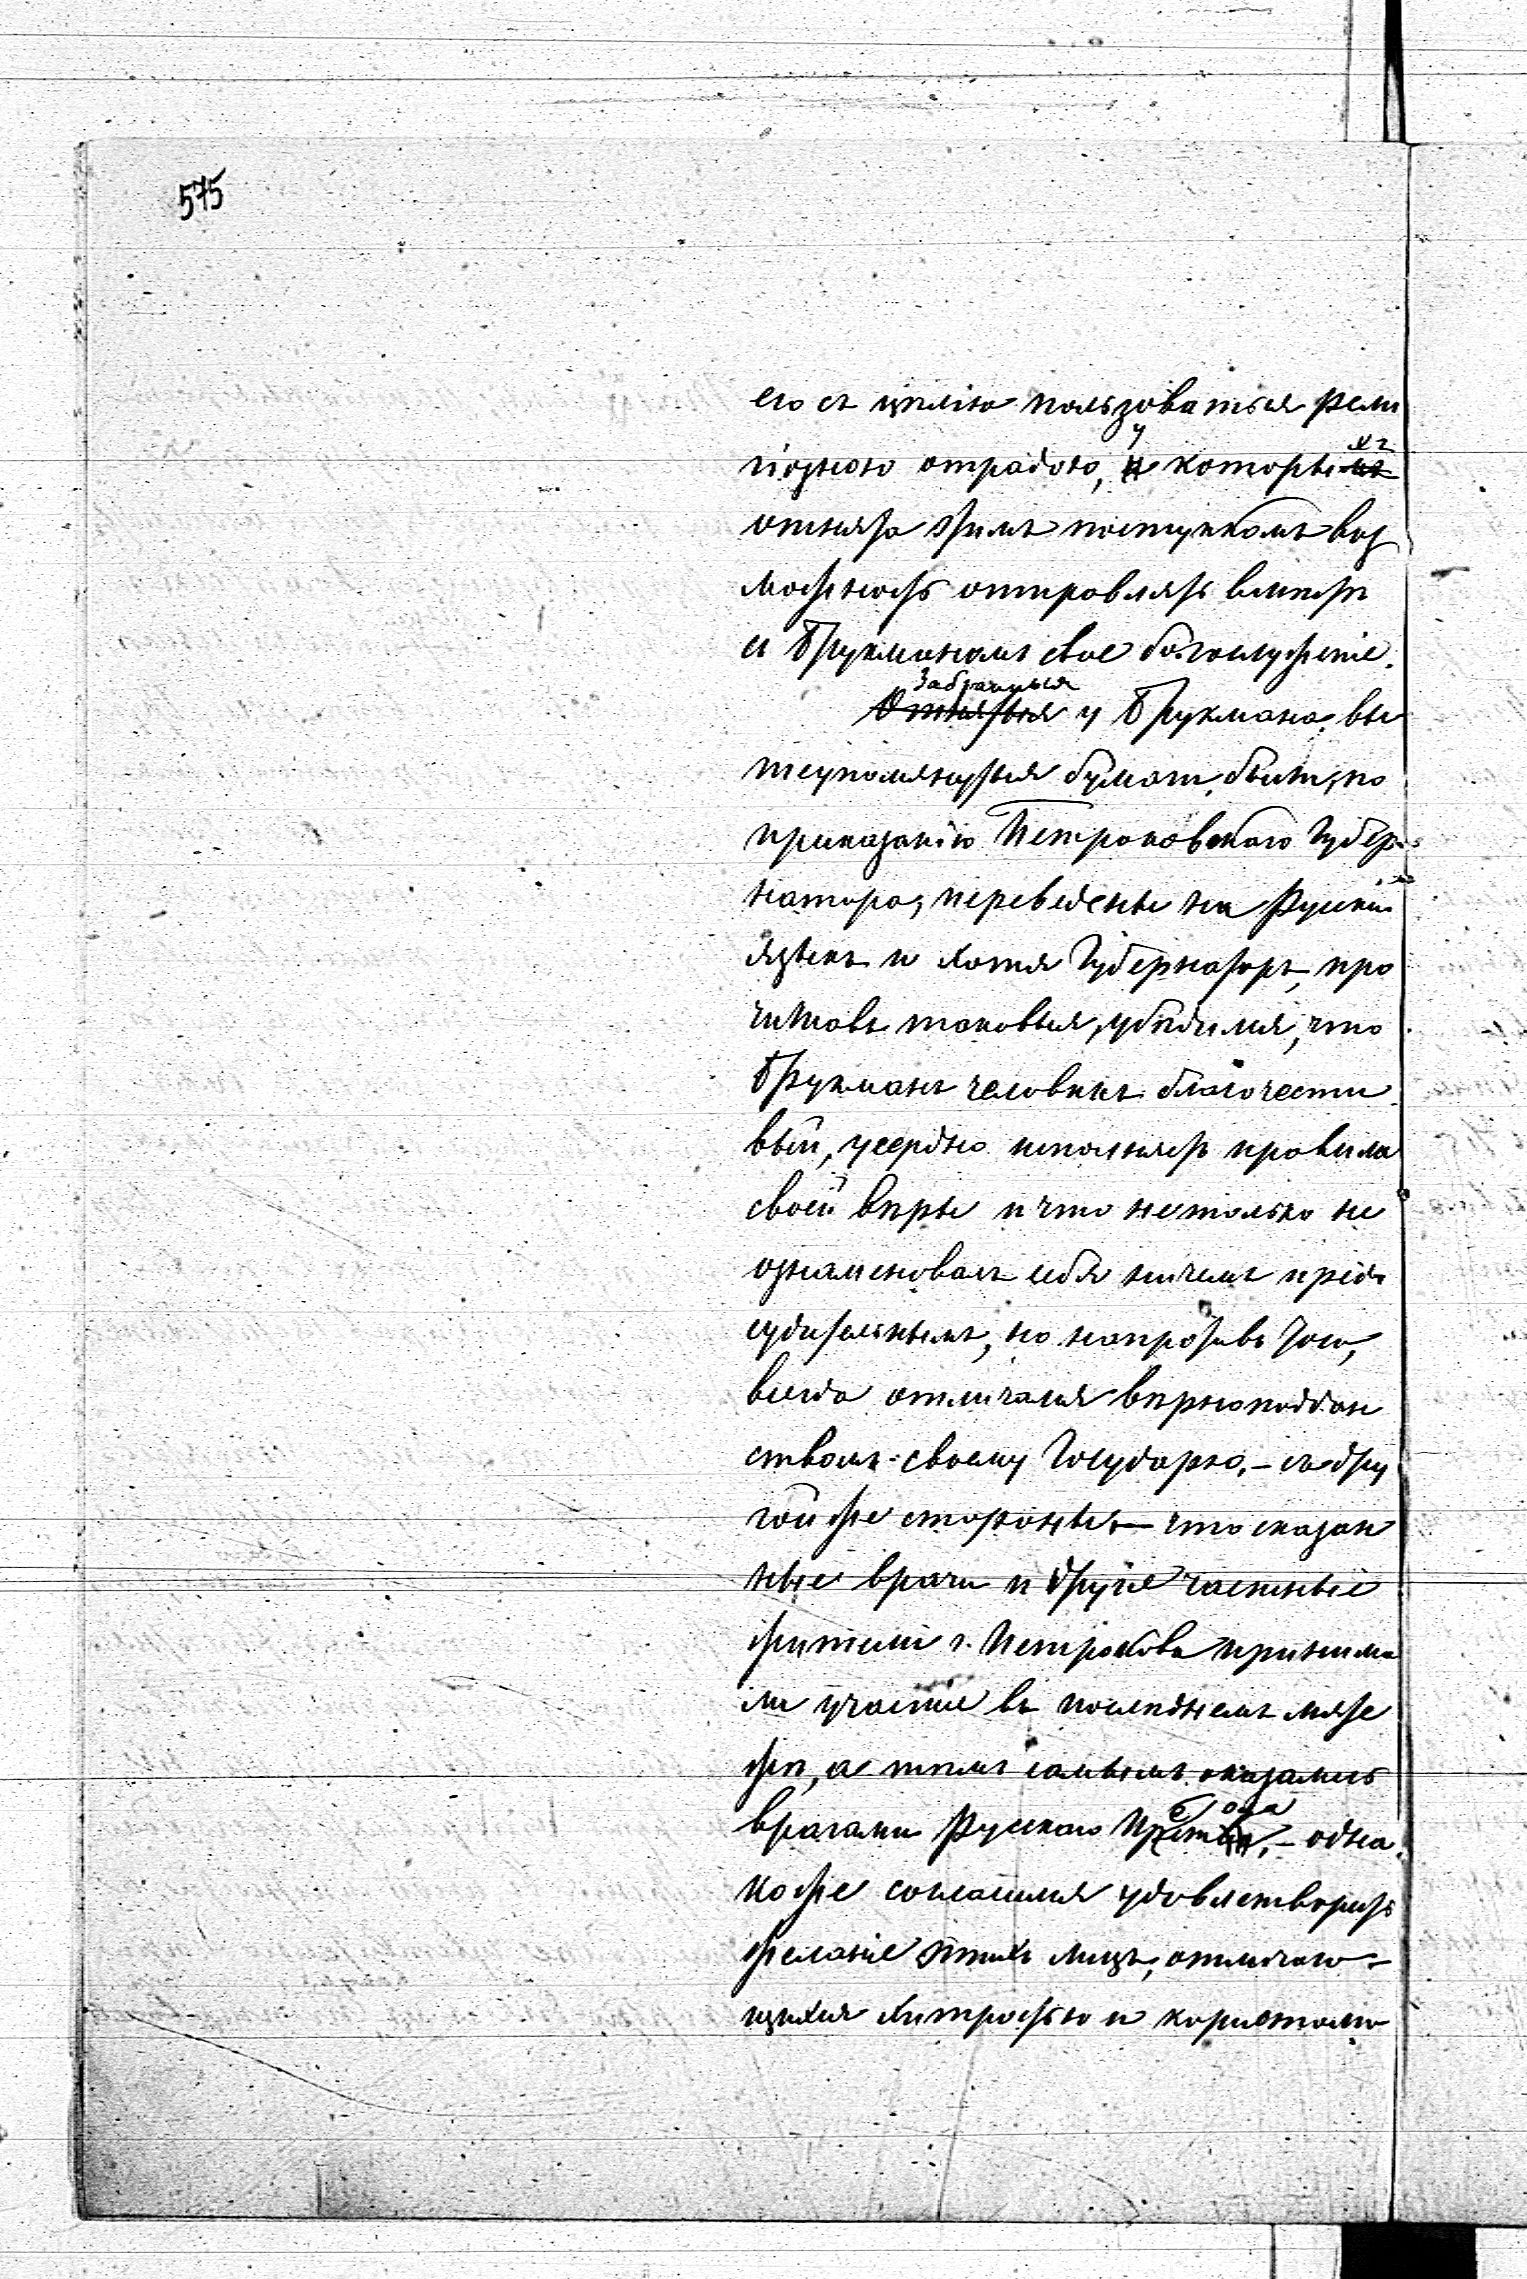 575
его съ цѣлію пользоваться рели
гіозною отрадою, у которыхъ
отнята этимъ поступкомъ воз
можность отправлять вмѣстѣ
съ Брукманомъ свое богослуженіе.
Забранныя
Отнятыя у Брукмана вы
шеупомянутыя бумаги, были, по
приказанію Петроковскаго Губер-
натора, переведены на Русскій
языкъ и хотя Губернаторъ, про
читавъ таковыя, убѣдился, что
Брукманъ человѣкъ благочести
вый, усердно исполняетъ правила
своей вѣры и что нетолько не
ознаменовалъ себя ничемъ пред
судительнымъ, но напротивъ того,
всегда отличался вѣрноподдан
ствомъ своему Государю, - съ дру
гой же стороны, — что сказан
ные врачи и другіе частные
жители г. Петрокова принима
ли участіе въ послѣднемъ мяте
жѣ, а тѣмъ самымъ оказались
врагами Русскаго Престола, - одна
коже согласился удовлетворить
желаніе этихъ лицъ, отличаю-
щихся хитростью и